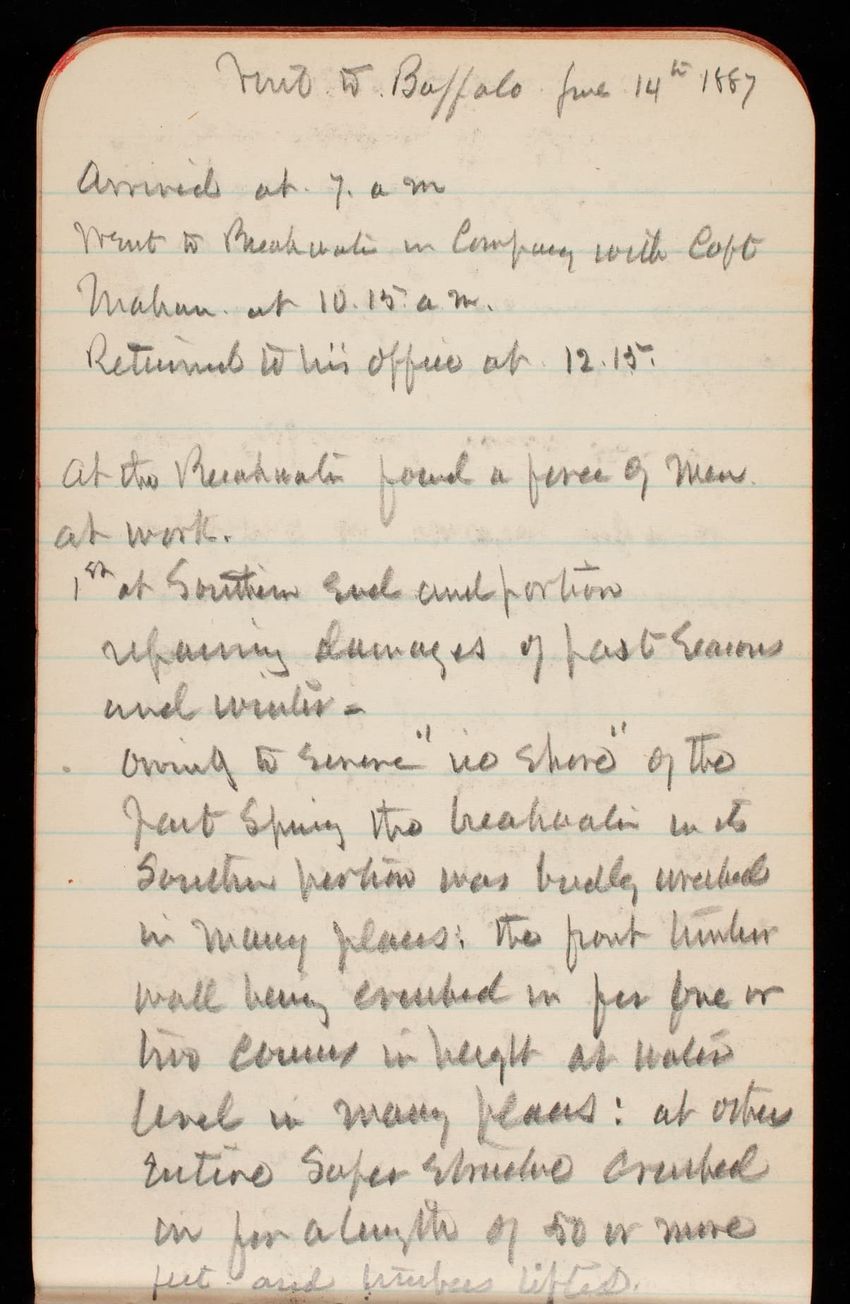 Visit to Buffalo June 14th 1887
Arrived at 7. a m
Went to Breakwater in Company with Capt
Mahan. at 10.15 a m.
Returned to his office at 12.15.
At the Breakwater found a force of Men
at work.
1st at Southern End and portion
repairing damages of past Seasons
and winter -
Owing to Severe "ice shove" of the
past Spring the breakwater in its
Southern portion was badly wrecked
in many places: the front timber
wall being crushed in for one or
two courses in height at water
level in many places: at others
Entire Super Structure Crushed
in for a length of 50 or more
feet and timbers lifted.